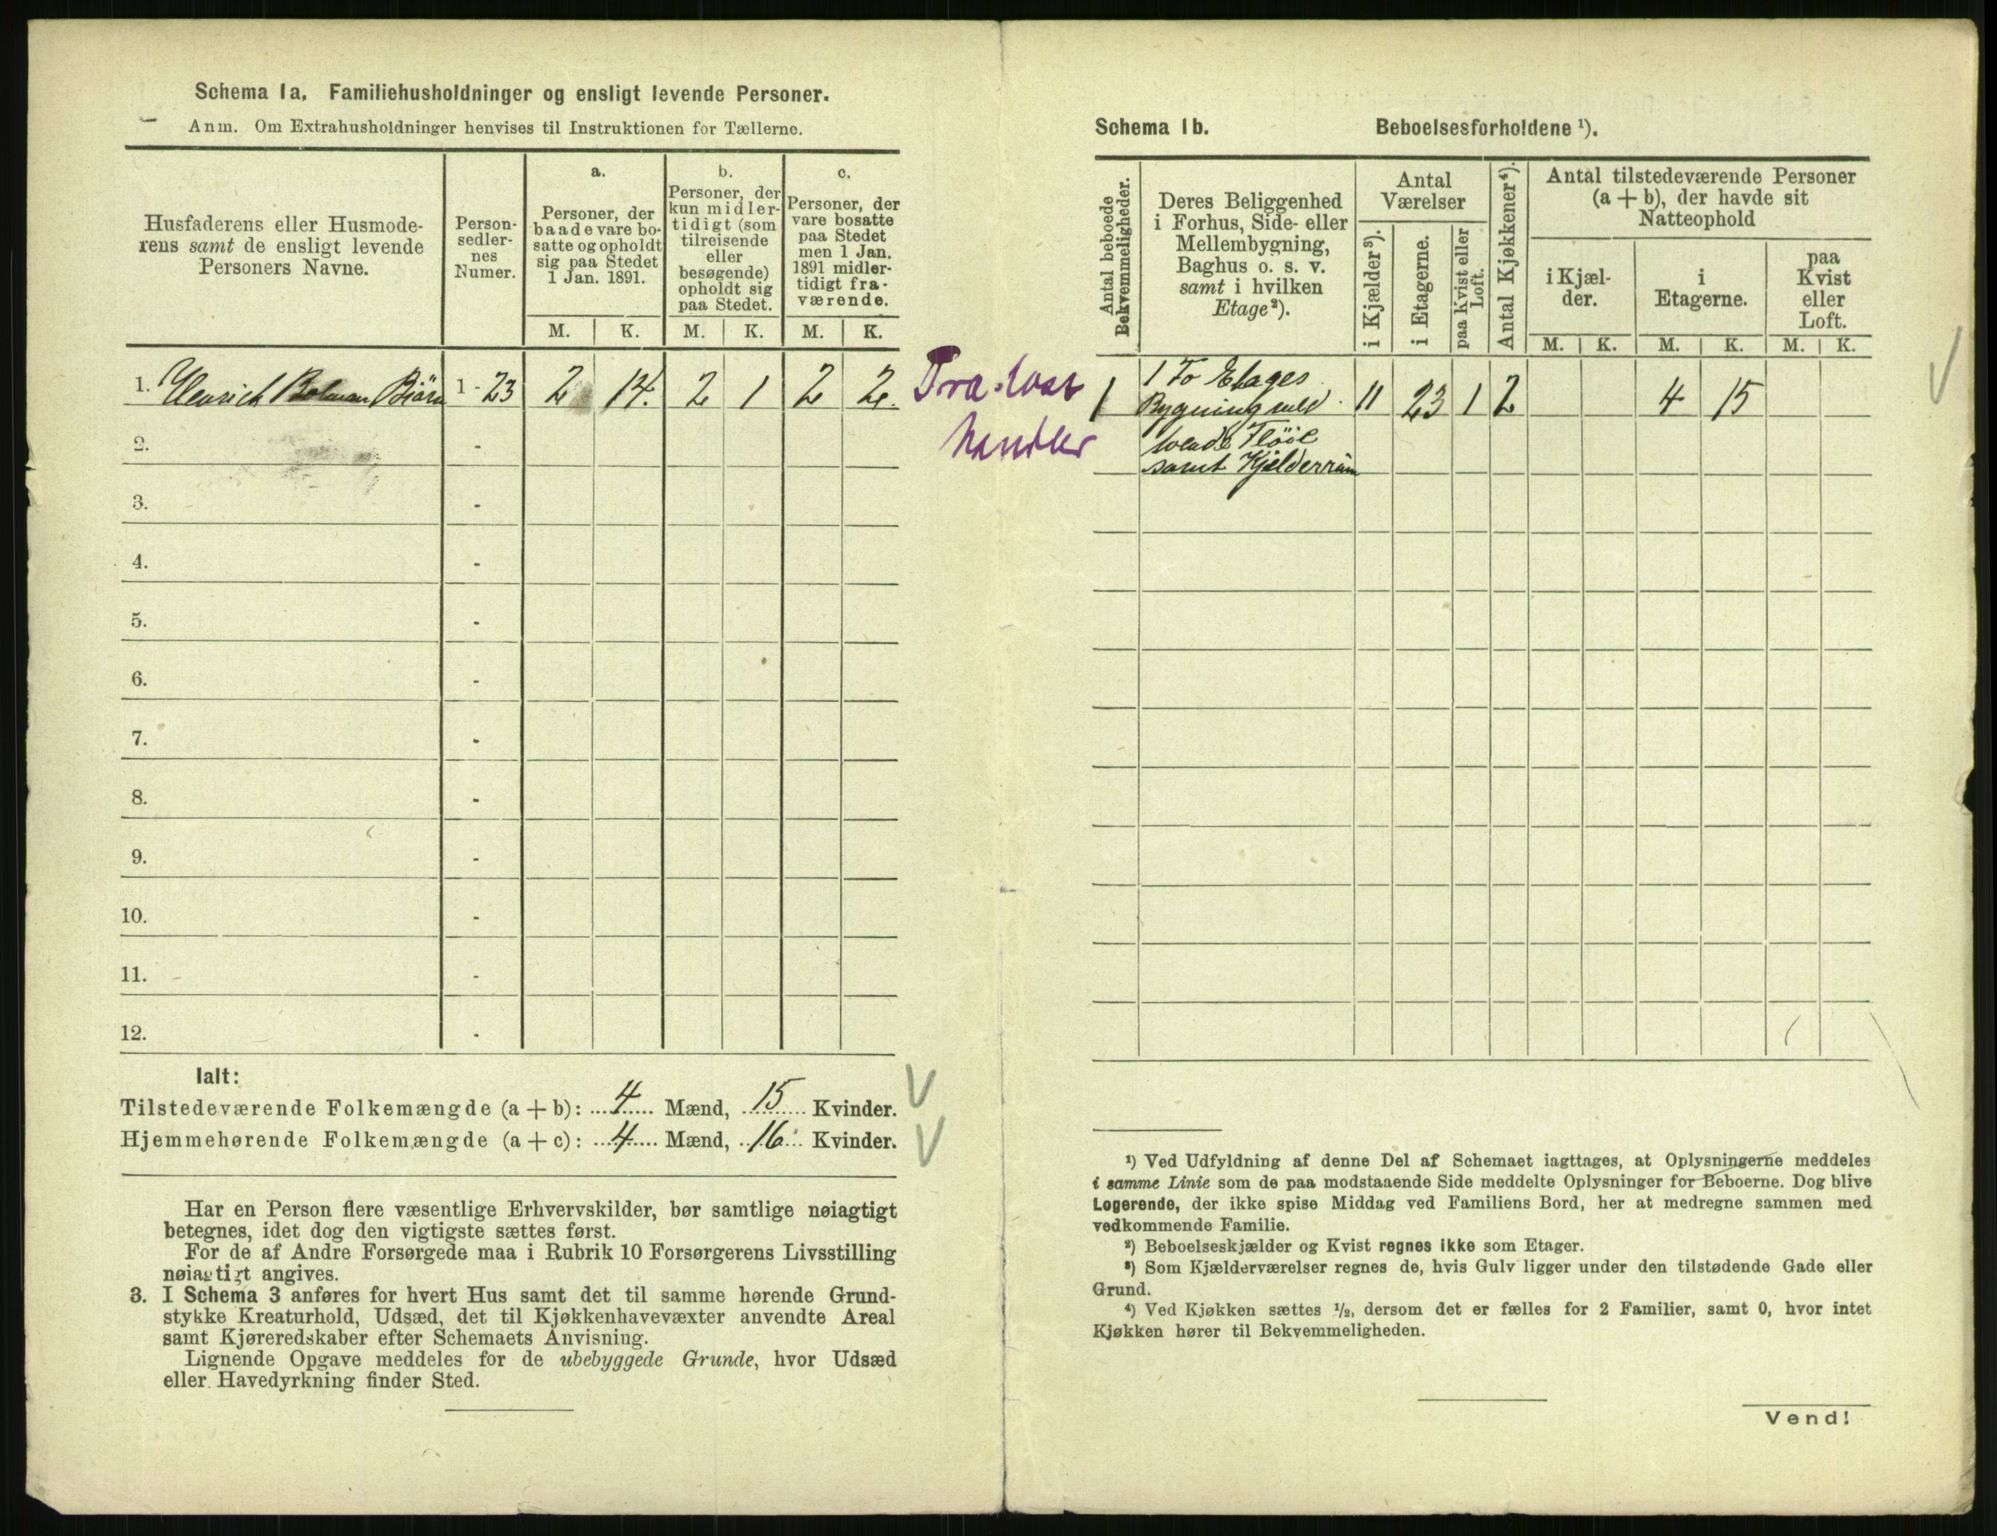 Schema 1a. Familiehusholdninger og ensligt levende Personer.
Anm. Om Extrahusholdninger henvises til Instruktionen for Tællerne.
Husfaderens eller Husmode-
rens samt de ensligt levende
Personers Navne.
Person-
sedler-
nes
Numer.
a.
Personer, der
baade vare bo-
satte og opholdt
sig paa Stedet
1 Jan. 1891.
b.
Personer, der
kun midler-
tidigt (som
tilreisende
eller
besøgende)
opholdt sig
paa Stedet.
c.
Personer, der
vare bosatte
paa Stedet
men 1 Jan.
1891 midler-
tidigt fra-
værende.
M. K. M. K. M. K.
1. Henrich Bolman Biörn 1 - 23 2 14. 2 1 2 2.
2. -
3. -
4. -
5. -
6. -
7. -
8. -
9. -
10. -
11. -
12. -
Ialt:
Tilstedeværende Folkemængde (a + b): 4 Mænd, 15 Kvinder.
Hjemmehørende Folkemængde (a + c): 4 Mænd, 16 Kvinder.
Har en Person flere væsentlige Erhvervskilder, bør samtlige nøiagtigt
betegnes, idet dog den vigtigste sættes først.
For de af Andre Forsørgede maa i Rubrik 10 Forsørgerens Livsstilling
nøiagtigt angives.
3. I Schema 3 anføres for hvert Hus samt det til samme hørende Grund-
stykke Kreaturhold, Udsæd, det til Kjøkkenhavevæxter anvendte Areal
samt Kjøreredskaber efter Schemaets Anvisning.
Lignende Opgave meddeles for de ubebyggede Grunde, hvor Udsæd
eller Havedyrkning finder Sted.
Trælast
handler
Schema 1b. Beboelsesforholdene ¹).
Antal beboede
Bekvemmeligheder.
Deres Beliggenhed
i Forhus, Side- eller
Mellembygning,
Baghus o. s. v.
samt i hvilken
Etage²).
Antal
Værelser
i Kjælder³).
i Etagerne.
paa Kvist eller
Loft.
Antal Kjøkkener⁴).
Antal tilstedeværende Personer
(a + b), der havde sit
Natteophold
i Kjæl-
der.
i
Etagerne.
paa
Kvist
eller
Loft.
M. K. M. K. M. K.
1 1 To Etages
Bygning med 11 23 1 2 4 15
Flöie
samt Kjælderrum
¹) Ved Udfyldning af denne Del af Schemaet iagttages, at Oplysningerne meddeles
i samme Linie som de paa modstaaende Side meddelte Oplysninger for Beboerne. Dog blive
Logerende, der ikke spise Middag ved Familiens Bord, her at medregne sammen med
vedkommende Familie.
²) Beboelseskjælder og Kvist regnes ikke som Etager.
³) Som Kjælderværelser regnes de, hvis Gulv ligger under den tilstødende Gade eller
Grund.
⁴) Ved Kjøkken sættes ½, dersom det er fælles for 2 Familier, samt 0, hvor intet
Kjøkken hører til Bekvemmeligheden.
Vend!